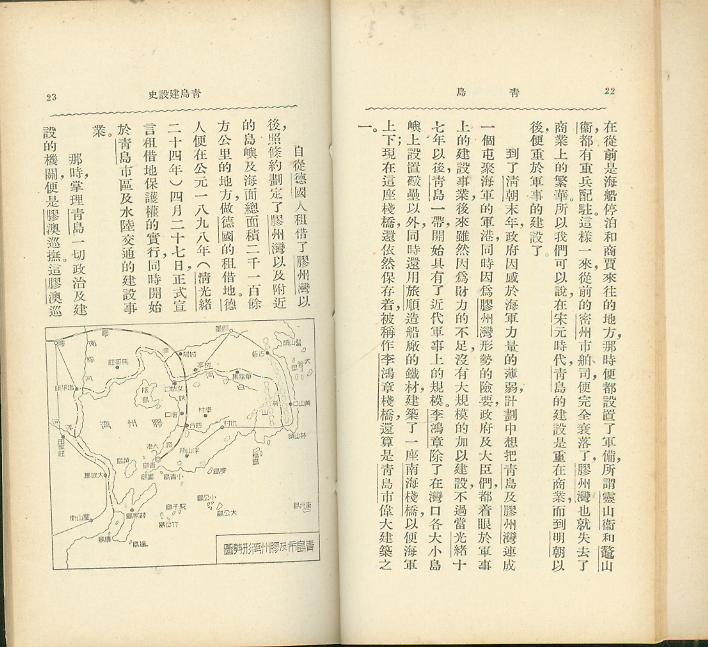 22
青島
在從前是海船停泊和商賈來往的地方，那時便都設置了軍備，所謂靈山衞和鼇山
衞都有重兵配駐。這樣一來，從前的密州市舶司便完全衰落了，膠州灣也就失去了
商業上的繁華。所以我們可以說，在宋元時代，青島的建設是重在商業，而到明朝以
後便重於軍事的建設了。
到了清朝末年，政府因感於海軍力量的薄弱，計劃中想把青島及膠州灣連成
一個屯聚海軍的軍港，同時因爲膠州灣形勢的險要，政府及大臣們，都着眼於軍事
上的建設事業，後來雖然因爲財力的不足，沒有大規模的加以建設，不過當光緒十
七年以後，青島一帶開始具有了近代軍事上的規模。李鴻章除了在灣口各大小島
嶼上設置礮壘以外，同時還用旅順造船廠的鐵材，建築了一座南海棧橋，以便海軍
上下；現在這座棧橋，還依然保存着，被稱作李鴻章棧橋，還算是青島市偉大建築之
一。
青島建設史
23
自從德國人租借了膠州灣以
後，照條約劃定了膠州灣以及附近
的島嶼及海面總面積二千一百餘
方公里的地方，做德國的租借地。德
人便在公元一八九八年（清光緒
二十四年）四月二十七日正式宣
言租借地保護權的實行，同時開始
於青島市區及水陸交通的建設事
業。
那時掌理青島一切政治及建
設的機關，便是膠澳巡撫。這膠澳巡
青島市及膠州灣形勢圖
膠州灣